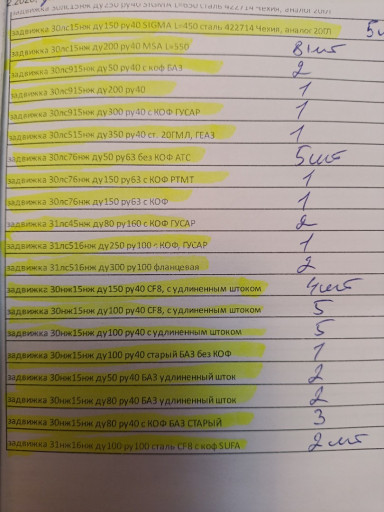 задвижка 30лс15нж ду250 ру40 SIGMA L=650 сталь 422714 Чехия, аналог 20ГЛ
задвижка 30лс15нж ду150 ру40 SIGMA L=450 сталь 422714 Чехия, аналог 20ГЛ 5
задвижка 30лс15нж ду200 ру40 MSA L=550 8 шт
задвижка 30лс915нж ду50 ру40 с коф БАЗ 2
задвижка 30лс915нж ду200 ру40 1
задвижка 30лс915нж ду300 ру40 с КОФ ГУСАР 1
задвижка 30лс515нж ду350 ру40 ст. 20ГМЛ, ГЕАЗ 1
задвижка 30лс76нж ду50 ру63 без КОФ АТС 5 шт
задвижка 30лс76нж ду150 ру63 с КОФ РТМТ 1
задвижка 30лс76нж ду150 ру63 с КОФ 1
задвижка 31лс45нж ду80 ру160 с КОФ ГУСАР 2
задвижка 31лс516нж ду250 ру100 с КОФ, ГУСАР 1
задвижка 31лс516нж ду300 ру100 фланцевая 2
задвижка 30нж15нж ду150 ру40 CF8, с удлиненным штоком 4 шт
задвижка 30нж15нж ду100 ру40 CF8, с удлиненным штоком 5
задвижка 30нж15нж ду100 ру40 с удлиненным штоком 5
задвижка 30нж15нж ду100 ру40 старый БАЗ без КОФ 1
задвижка 30нж15нж ду50 ру40 БАЗ удлиненный шток 2
задвижка 30нж15нж ду80 ру40 БАЗ удлиненный шток 2
задвижка 30нж15нж ду80 ру40 с КОФ БАЗ СТАРЫЙ 3
задвижка 31нж16нж ду100 ру100 сталь CF8 с коф SUFA 2 шт